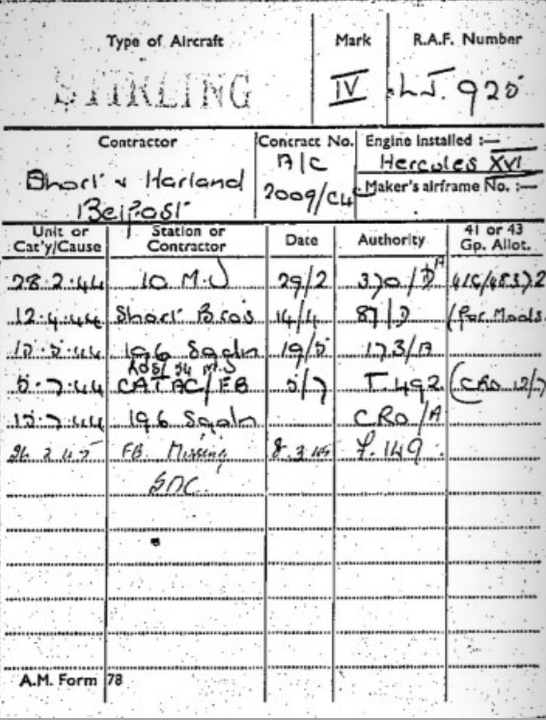 Type of Aircraft Mark R.A.F. Number
STIRLING IV LJ. 925
Contractor Contract No. Engine Installed :—
A/C Hercules XVI
Short & Harland 2009/C4 Maker's airframe No. :—
Belfast
Unit or Cat'y/Cause Station or Contractor Date Authority 41 or 43 Gp. Allot.
28.2.44 10 M.U 29/2 370/D
12.4.44 Short Bros 14/4 87/D (for Mods.
196 Sqdn 19/5 173/A
5.7.44 CATAC/FB 5/7 T.492 (CRO 12/7
196 Sqdn CRO/A
26 2 45 FB. Missing 8.3.45 F.149
SOC.
A.M. Form 78